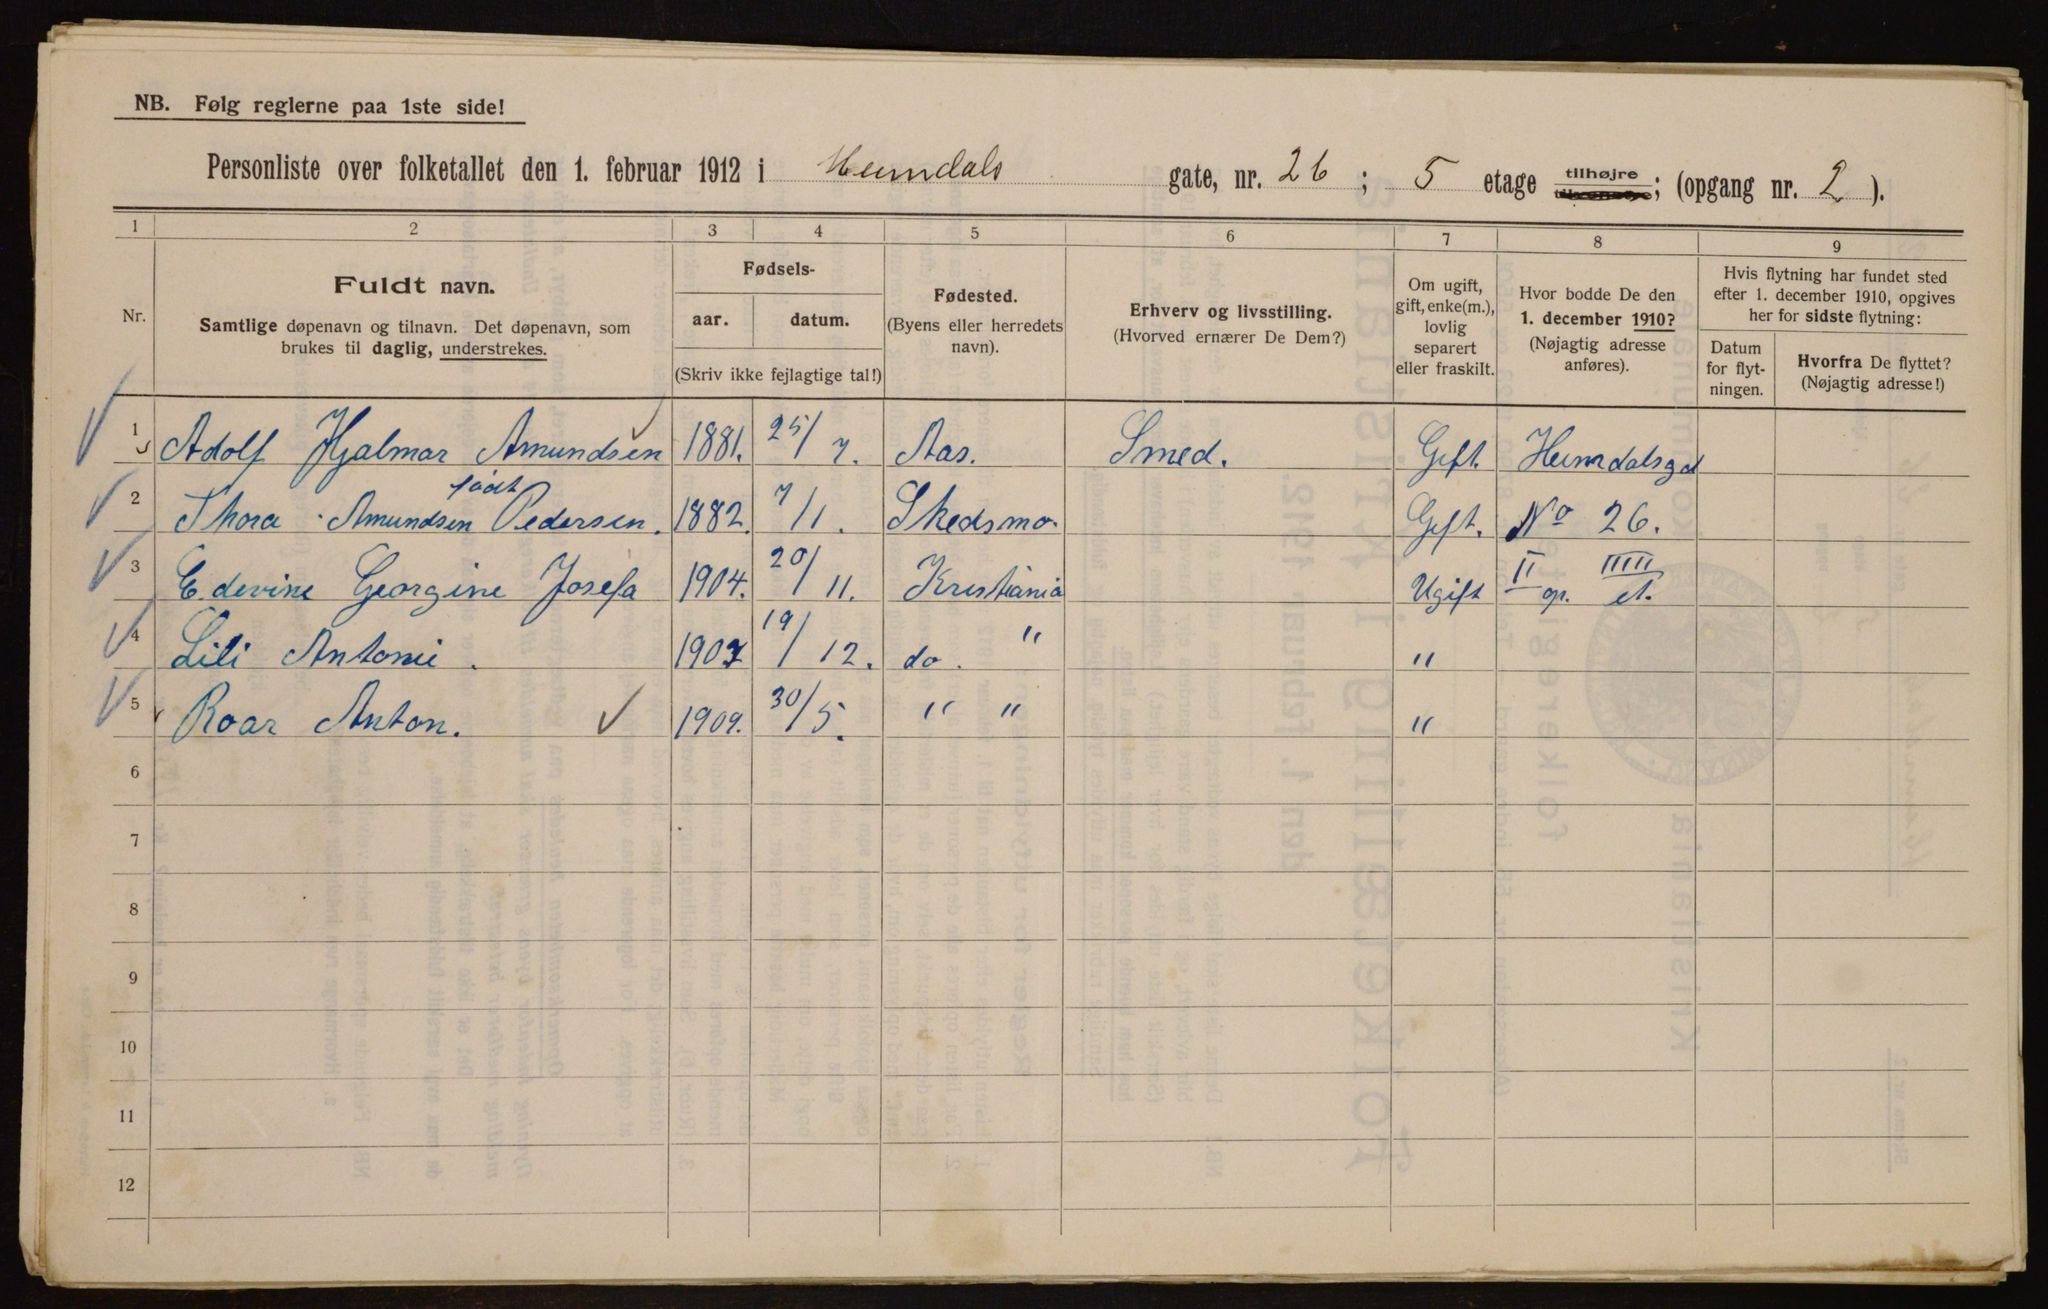 NB. Følg reglerne paa 1ste side!
Personliste over folketallet den 1. februar 1912 i Heimdals gate, nr. 26 ; 5 etage tilhøjre tilvenstre; (opgang nr. 2 ).
1 2 3 4 5 6 7 8 9
Nr.
Fuldt navn.
Samtlige døpenavn og tilnavn. Det døpenavn, som
brukes til daglig, understrekes.
Fødsels-
aar. datum.
(Skriv ikke fejlagtige tal!)
Fødested.
(Byens eller herredets
navn).
Erhverv og livsstilling.
(Hvorved ernærer De Dem?)
Om ugift,
gift, enke(m.),
lovlig
separert
eller fraskilt.
Hvor bodde De den
1. december 1910?
(Nøjagtig adresse
anføres).
Hvis flytning har fundet sted
efter 1. december 1910, opgives
her for sidste flytning:
Datum
for flyt-
ningen.
Hvorfra De flyttet?
(Nøjagtig adresse!)
1 Adolf Hjalmar Amundsen 1881. 25/7. Aas. Smed. Gift. Heimdalsgd
født
2 Thora Amundsen Pedersen. 1882. 7/1. Skedsmo. Gift. No 26.
3 Edevine Georgine Josefa 1904. 20/11. Kristiania Ugift II op. IIIII et.
4 Lili Antonie. 1907 19/12. do. " "
5 Roar Anton. 1909. 30/5. " " "
6
7
8
9
10
11
12